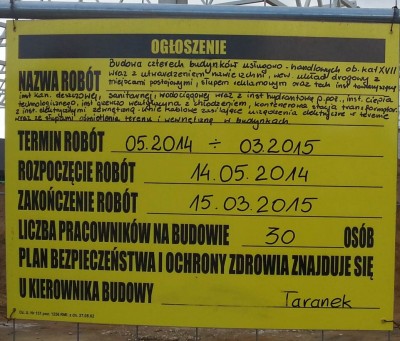 OGŁOSZENIE
Budowa czterech budynków usługowo-handlowych ob. kat XVII
NAZWA ROBÓT wraz z utwardzeniem nawierzchni, wew. układ drogowy z
miejscami postojowymi, słupem reklamowym oraz tech. inst. towarzyszący
inst. kan. deszczowej, sanitarnej, wodociągowej wraz z inst. hydrantową p.poż., inst. ciepła
technologicznego, inst. wentylacyjna z chłodzeniem, kontenerowa stacja transformator.
z inst. elektrycznymi zewnętrzną: linie kablowe zasilające urządzenia elektryczne w terenie
wraz ze słupami oświetlenia terenu i wewnętrzną w budynkach
TERMIN ROBÓT 05.2014 ÷ 03.2015
ROZPOCZĘCIE ROBÓT 14.05.2014
ZAKOŃCZENIE ROBÓT 15.03.2015
LICZBA PRACOWNIKÓW NA BUDOWIE 30 OSÓB
PLAN BEZPIECZEŃSTWA I OCHRONY ZDROWIA ZNAJDUJE SIĘ
U KIEROWNIKA BUDOWY Taranek